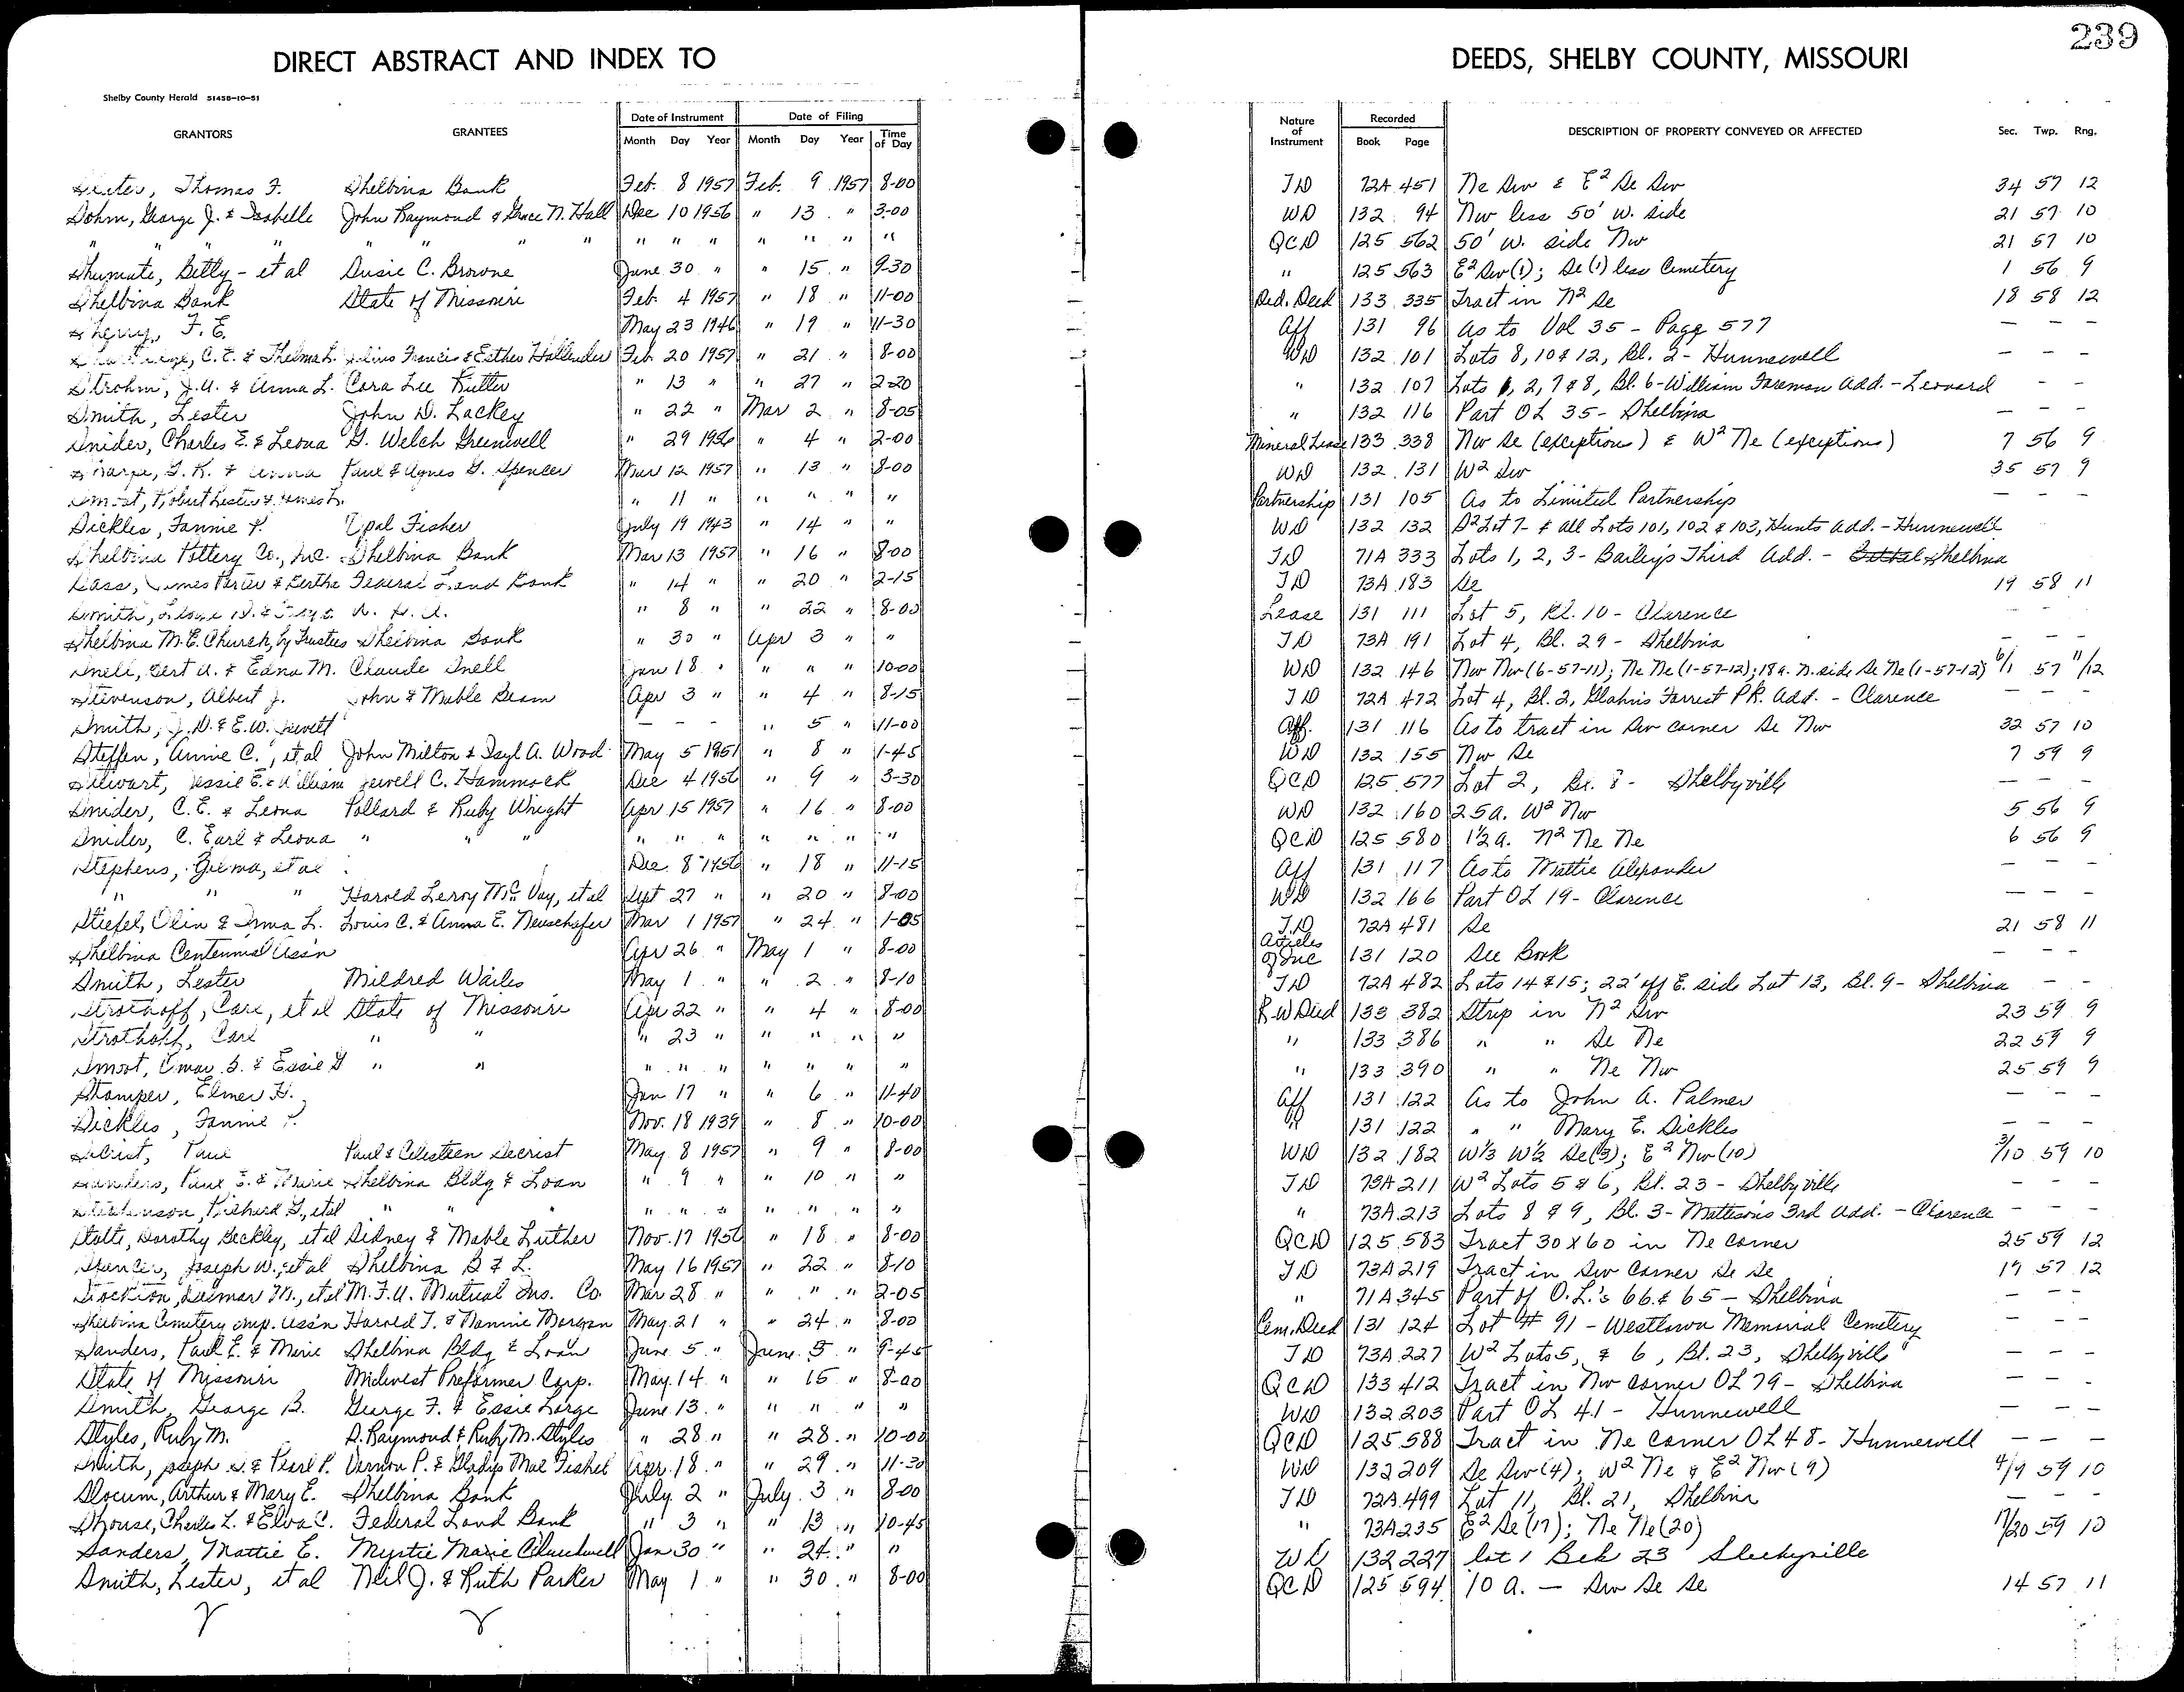 239
DIRECT ABSTRACT AND INDEX TO
DEEDS, SHELBY COUNTY, MISSOURI
Shelby County Herald 51458-10-51
GRANTORS GRANTEES Date of Instrument Month Day Year Date of Filing Month Day Year Time of Day Nature of Instrument Recorded Book Page DESCRIPTION OF PROPERTY CONVEYED OR AFFECTED Sec. Twp. Rng.
Thomas F. Shelbina Bank Feb. 8 1957 Feb. 9 1957 8-00 TD 72A 451 Ne Sw & E² Se Sw 34 57 12
Sohm, George J. & Isabelle John Raymond & Grace N. Hall Dec 10 1956 " 13 " 3-00 WD 132 94 Nw less 50' w. side 21 57 10
" " " " " " " " " " " " " QCD 125 562 50' w. side Nw 21 57 10
Shumate, Betty - et al Susie C. Browne June 30 " " 15 " 9-30 " 125 563 E² Sw (1); Se (1) less Cemetery 1 56 9
Shelbina Bank State of Missouri Feb. 4 1957 " 18 " 11-00 Ded. Deed 133 335 Tract in N² Se 18 58 12
Sherry, F. E. May 23 1946 " 19 " 11-30 Aff 131 96 As to Vol 35 - Page 577 — — —
C. E. & Thelma L. Francis & Esther Hollender Feb. 20 1957 " 21 " 8-00 WD 132 101 Lots 8, 10 & 12, Bl. 2 - Hunnewell — — —
Strohm, J. U. & Anna L. Cora Lee Rutter " 13 " " 27 " 2-20 " 132 107 Lots 1, 2, 7 & 8, Bl. 6 - William Foreman Add. - Leonard - -
Smith, Lester John D. Lackey " 22 " Mar 2 " 8-05 " 132 116 Part OL 35 - Shelbina — — —
Snider, Charles E. & Leona G. Welch Greenwell " 29 1956 " 4 " 2-00 Mineral Lease 133 338 Nw Se (exceptions) & W² Ne (exceptions) 7 56 9
Sharpe, G. K. & Anna Paul & Agnes G. Spencer Mar 12 1957 " 13 " 8-00 WD 132 131 W² Sw 35 57 9
Robert Lester & James L. " 11 " " " " " Partnership 131 105 As to Limited Partnership — — —
Sickles, Fannie P. Opal Fisher July 19 1943 " 14 " " WD 132 132 S² Lot 7 - & all Lots 101, 102 & 103, Hunts Add. - Hunnewell
Shelbina Pottery Co., Inc. Shelbina Bank Mar 13 1957 " 16 " 8-00 TD 71A 333 Lots 1, 2, 3 - Bailey's Third Add. - Bethel Shelbina
Sass, James Porter & Bertha Federal Land Bank " 14 " " 20 " 2-15 TD 73A 183 Se 19 58 11
Smith, " 8 " " 22 " 8-00 Lease 131 111 Lot 5, Bl. 10 - Clarence
Shelbina M. E. Church, by Trustees Shelbina Bank " 30 " Apr 3 " " TD 73A 191 Lot 4, Bl. 29 - Shelbina — — —
Snell, Bert A. & Edna M. Claude Snell Jan 18 " " " " 10-00 WD 132 146 Nw Nw (6-57-11); Ne Ne (1-57-12); 18 a. N. side Se Ne (1-57-12) 6/1 57 11/12
Stevenson, Albert J. John & Mable Beam Apr 3 " " 4 " 8-15 TD 72A 472 Lot 4, Bl. 2, Glahn's Forrest PK. Add. - Clarence — — —
Smith, J. D. & E. W. Jewett — - - " 5 " 11-00 Aff. 131 116 As to tract in Sw corner Se Nw 32 57 10
Steffen, Annie C., et al John Milton & Isyl A. Wood May 5 1951 " 8 " 1-45 WD 132 155 Nw Se 7 59 9
Stewart, Jessie E. & William Jewell C. Hammock Dec 4 1956 " 9 " 3-30 QCD 125 577 Lot 2, Bl. 8 - Shelbyville — — —
Snider, C. E. & Leona Pollard & Ruby Wright Apr 15 1957 " 16 " 8-00 WD 132 160 25a. W² Nw 5 56 9
Snider, C. Earl & Leona " " " " " " " " " " QCD 125 580 1½ a. N² Ne Ne 6 56 9
Stephens, Zelma, et al Dec. 8 1956 " 18 " 11-15 Aff 131 117 As to Mattie Alexander — — —
" " " Harold Leroy McVay, et al Sept 27 " " 20 " 8-00 WD 132 166 Part OL 19 - Clarence — — —
Stiefel, Olin & Irma L. Louis C. & Anna E. Neuschafer Mar 1 1957 " 24 " 1-05 TD 72A 481 Se 21 58 11
Shelbina Centennial Ass'n Apr 26 " May 1 " 8-00 Articles of Inc 131 120 See Book — — —
Smith, Lester Mildred Wailes May 1 " " 2 " 8-10 TD 72A 482 Lots 14 & 15; 22' off E. side Lot 13, Bl. 9 - Shelbina - -
Strothoff, Carl, et al State of Missouri Apr 22 " " 4 " 8-00 R.W Deed 133 382 Strip in N² Sw 23 59 9
Strothoff, Carl " " " 23 " " " " " " 133 386 " " Se Ne 22 59 9
Smoot, Omar B. & Essie G " " " " " " " " " " 133 390 " " Ne Nw 25 59 9
Stamper, Elmer H. Jan 17 " " 6 " 11-40 Aff 131 122 As to John A. Palmer — — —
Sickles, Fannie P. Nov. 18 1939 " 8 " 10-00 " 131 122 " " Mary E. Sickles — — —
Secrist, Paul Paul & Celesteen Secrist May 8 1957 " 9 " 8-00 WD 132 182 W⅓ W½ Se (3); E² Nw (10) 3/10 59 10
Sanders, Paul E. & Marie Shelbina Bldg & Loan " 9 " " 10 " " TD 73A 211 W² Lots 5 & 6, Bl. 23 - Shelbyville — — —
Richard G., et al " " " " " " " " " " " 73A 213 Lots 8 & 9, Bl. 3 - Mattison's 3rd Add. - Clarence — — —
Stalte, Dorothy Beckley, et al Sidney & Mable Luther Nov. 17 1956 " 18 " 8-00 QCD 125 583 Tract 30 x 60 in Ne corner 25 59 12
Spencer, Joseph W., et al Shelbina B & L. May 16 1957 " 22 " 8-10 TD 73A 219 Tract in Sw Corner Se Se 19 57 12
Stockton, Delmar M., et al M. F. U. Mutual Ins. Co. Mar 28 " " " " 2-05 " 71A 345 Part of O.L.'s 66 & 65 - Shelbina — — —
Shelbina Cemetery Imp. Ass'n Harold T. & Nannie Morgan May 21 " " 24 " 8-00 Cem. Deed 131 124 Lot # 91 - Westlawn Memorial Cemetery — — —
Sanders, Paul E. & Marie Shelbina Bldg & Loan June 5 " June 5 " 9-45 TD 73A 227 W² Lots 5, & 6, Bl. 23, Shelbyville — — —
State of Missouri Midwest Preformer Corp. May 14 " " 15 " 8-00 QCD 133 412 Tract in Nw corner OL 79 - Shelbina — — -
Smith, George B. George F. & Essie Large June 13 " " " " " WD 132 203 Part OL 41 - Hunnewell — — —
Styles, Ruby M. S. Raymond & Ruby M. Styles " 28 " " 28 " 10-00 QCD 125 588 Tract in Ne corner OL 48 - Hunnewell — — —
Smith, Joseph S. & Pearl P. Vernon P. & Gladys Mae Fishel Apr. 18 " " 29 " 11-30 WD 132 209 Se Sw (4); W² Ne & E² Nw (9) 4/9 59 10
Slocum, Arthur & Mary E. Shelbina Bank July 2 " July 3 " 8-00 TD 72A 499 Lot 11, Bl. 21, Shelbina — — —
Shouse, Charles L. & Elva C. Federal Land Bank " 3 " " 13 " 10-45 " 73A 235 E² Se (17); Ne Ne (20) 17/20 59 10
Sanders, Mattie E. Myrtie Marie Jan 30 " " 24 " " WD 132 227 lot 1 Bek 23 Shelbyville
Smith, Lester, et al Neil J. & Ruth Parker May 1 " " 30 " 8-00 QCD 125 594 10 a. — Sw Se Se 14 57 11